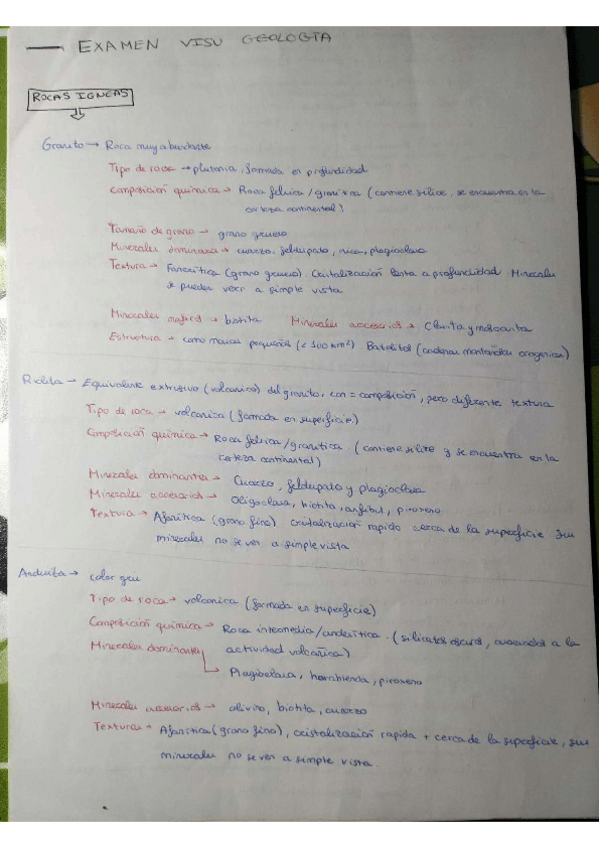 — EXAMEN VISU GEOLOGÍA
ROCAS IGNEAS
Granito → Roca muy abundante
Tipo de roca → plutonia, formada en profundidad
Composición química → Roca felsica/granítica (contiene sílice, se encuentra en la
corteza continental)
Tamaño de grano → grano grueso
Minerales dominans → cuarzo, feldespato, mica, plagioclasa
Textura → Fanerítica (grano grueso). Cristalización lenta a profundidad. Minerales
se pueden ver a simple vista
Minerales máficos → biotita Minerales accesorios → Clorita y moscovita
Estructura → como masas pequeñas (< 100 km²) Batolitos (cadenas montañosas orogenicas)
Riolita → Equivalente extrusivo (volcanico) del granito, con = composición, pero diferente textura
Tipo de roca → volcanica (formada en superficie)
Composición química → Roca felsica/granitica (contiene silice y se encuentra en la
corteza continental)
Minerales dominantes → Cuarzo, feldespato y plagioclasa
Minerales accesorios → Oligoclasa, biotita, anfibol, piroxeno
Textura → Afanítica (grano fino) Cristalización rapida cerca de la superficie Sus
minerales no se ven a simple vista
Andesita → color gris
Tipo de roca → volcanica (formada en superficie)
Composición química → Roca intermedia/andesítica (silicatos oscuros, asociados a la
actividad volcanica)
Minerales dominantes
Plagioclasa, hornblenda, piroxeno
Minerales accesorios → olivino, biotita, cuarzo
Texturas → Afanítica (grano fino), cristalización rapida + cerca de la superficie, sus
minerales no se ven a simple vista.